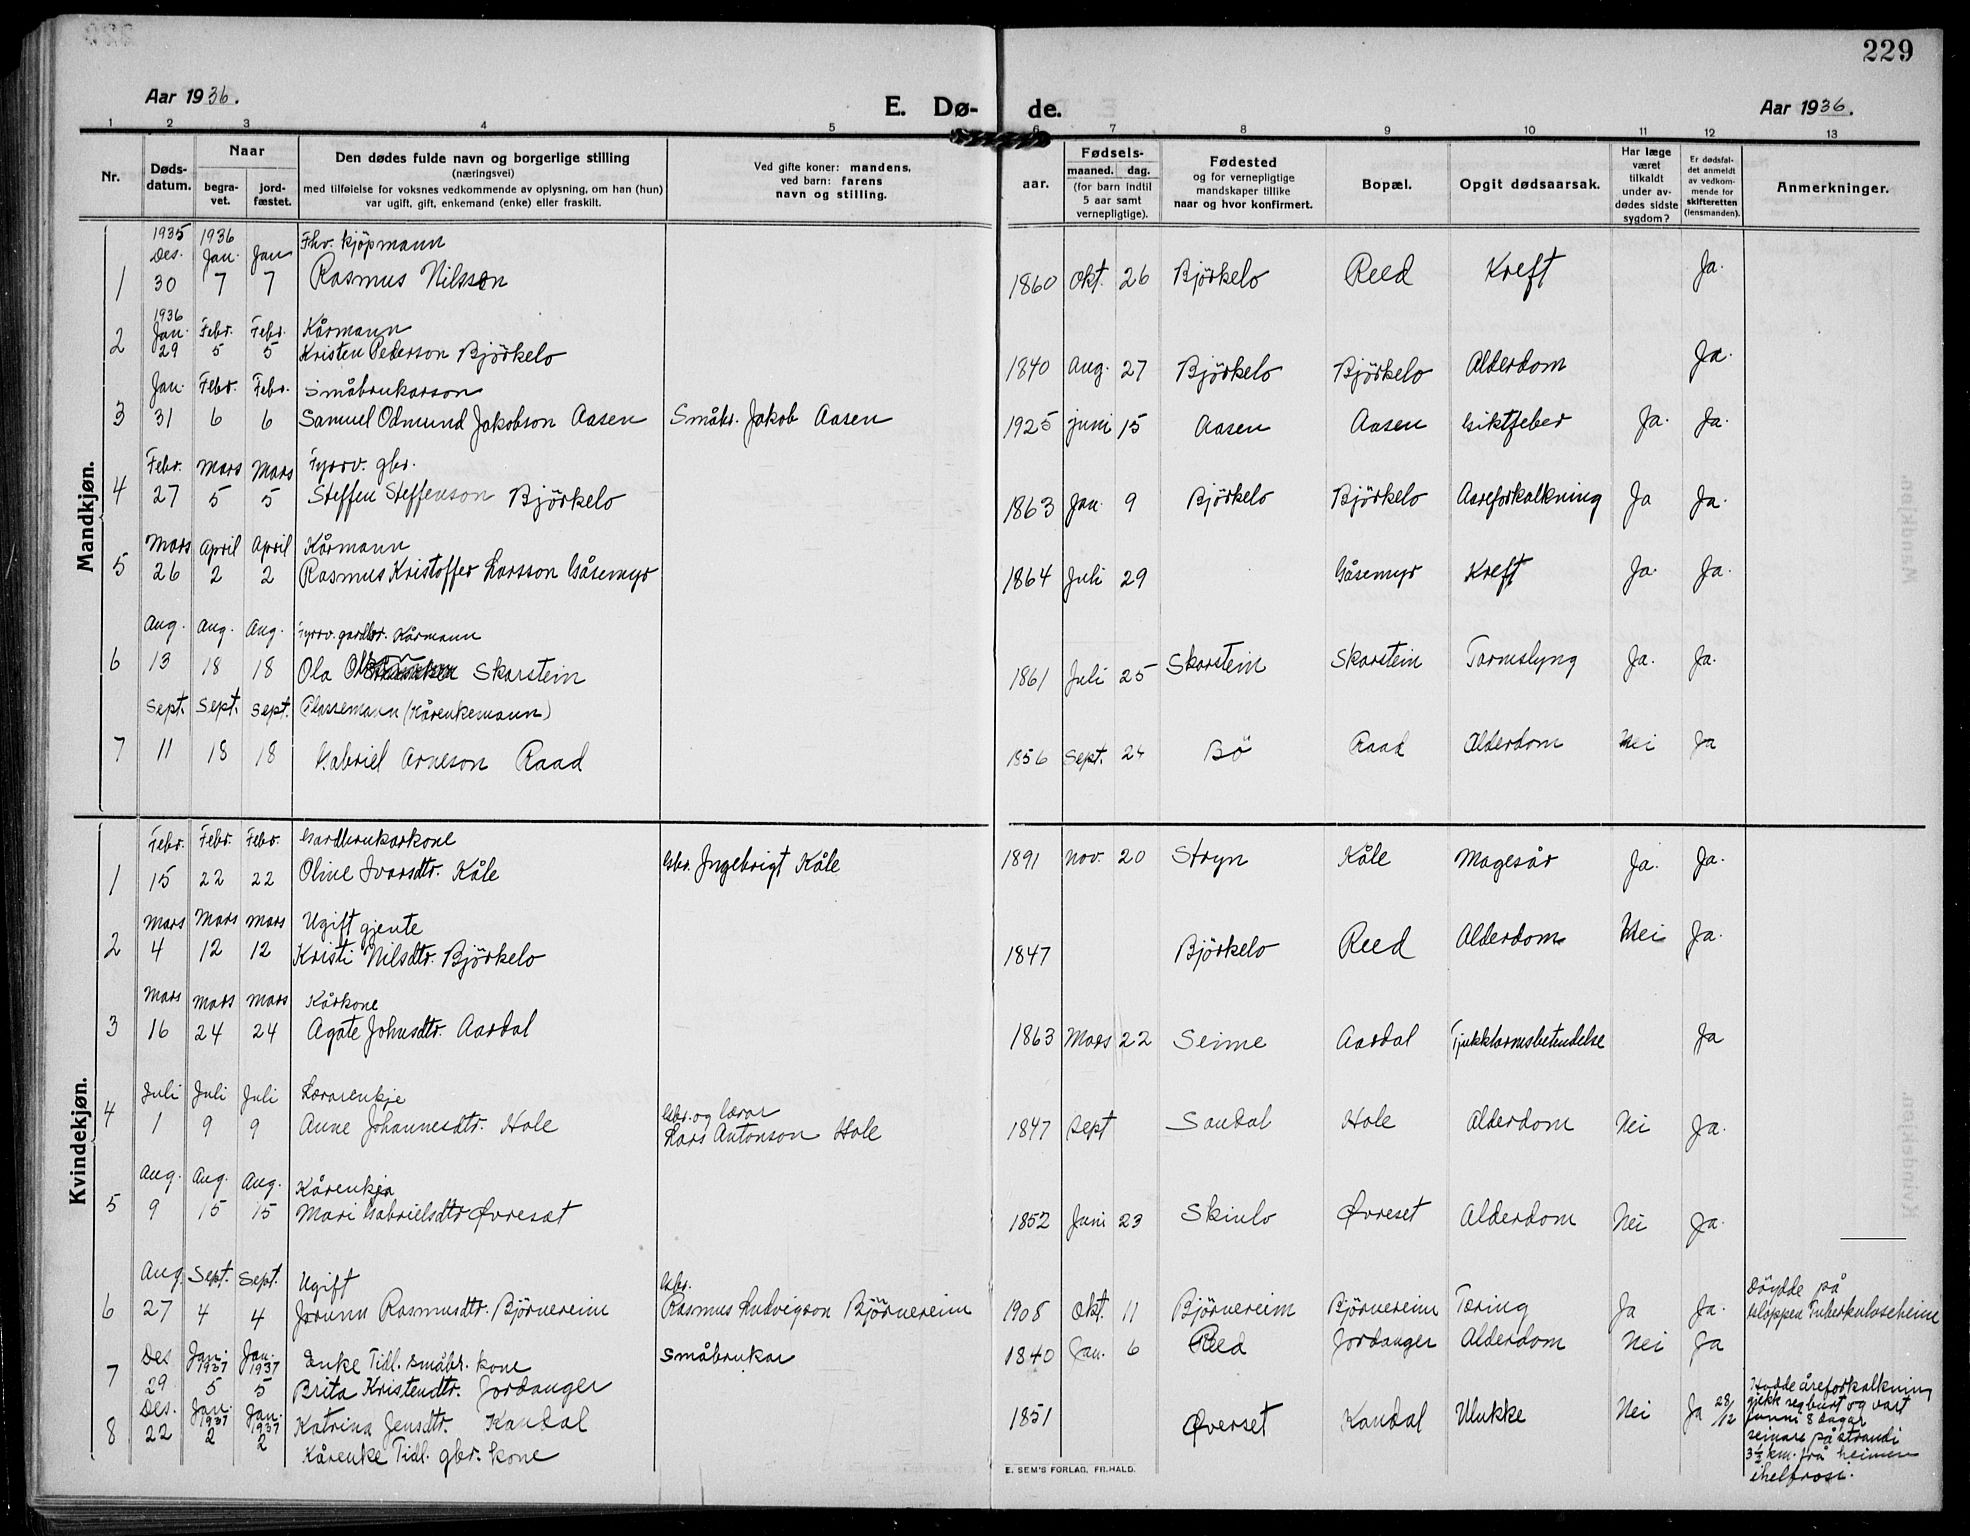 229
Aar 1936.
E. Dø- de.
Aar 1936.
1 2 3 4 5 6 7 8 9 10 11 12 13
Nr.
Døds-datum.
Naar
begra-vet.
jord-fæstet.
Den dødes fulde navn og borgerlige stilling
(næringsvei)
med tilføielse for voksnes vedkommende av oplysning, om han (hun)
var ugift, gift, enkemand (enke) eller fraskilt.
Ved gifte koner: mandens,
ved barn: farens
navn og stilling.
Fødsels-
aar.
maaned. dag.
(for barn indtil
5 aar samt
vernepligtige).
Fødested
og for vernepligtige
mandskaper tillike
naar og hvor konfirmert.
Bopæl.
Opgit dødsaarsak.
Har læge
været
tilkaldt
under av-
dødes sidste
sygdom?
Er dødsfal-
det anmeldt
av vedkom-
mende for
skifteretten
(lensmanden).
Anmerkninger.
Mandkjøn.
1935 1936
Des. Jan. Jan Fhv. kjøpmann
1 30 7 7 Rasmus Nilsson 1860 Okt. 26 Björkelo Reed Kreft Ja.
1936
Jan. Febr. Febr. Kårmann
2 29 5 5 Kristen Pederson Björkelo 1840 Aug. 27 Björkelo Björkelo Alderdom Ja.
Jan. Febr. Febr. Småbrukarson
3 31 6 6 Samuel Odmund Jakobson Aasen Småbr. Jakob Aasen 1925 juni 15 Aasen Aasen Giktfeber Ja. Ja.
Febr. Mars Mars Fyrrv. gbr.
4 27 5 5 Steffen Steffenson Björkelo 1863 Jan. 9 Björkelo Björkelo Aareforkalkning Ja Ja.
Mars April April Kårmann
5 26 2 2 Rasmus Kristoffer Larsson Gåsemyr 1864 Juli 29 Gåsemyr Kreft Ja. Ja.
Aug. Aug. Aug. Fyrrv. gardbr. Kårmann
6 13 18 18 Ola Skarstein 1861 Juli 25 Skarstein Skarstein Tarmslyng Ja. Ja.
Sept. Sept. Sept. Plassemann (Kårenkemann)
7 11 18 18 Gabriel Arneson Raad 1856 Sept. 24 Bö Raad Alderdom Nei Ja
Kvindekjøn.
Febr. Febr. Febr. Gardbrukarkone
1 15 22 22 Oline Ivarsdtr. Kåle Gbr. Ingebrigt Kåle 1891 Nov. 20 Stryn Kåle Magesår Ja. Ja.
Mars Mars Mars Ugift gjente
2 4 12 12 Kristi Nilsdtr. Björkelo 1847 Björkelo Reed Alderdom Nei Ja.
Mars Mars Mars Kårkone
3 16 24 24 Agate Johnsdtr. Aardal 1863 Mars 22 Seime Aardal Tjukktarmsbetendelse Ja
Juli Juli Juli Lærarenkje
Gbr. og lærar
4 1 9 9 Anne Johannesdtr. Hole Lars Antonson Hole 1847 Sept Sandal Hole Alderdom Nei Ja.
Aug. Aug. Aug. Kårenkja
5 9 15 15 Mari Gabrielsdtr Øvreset 1852 Juni 23 Skinlo Øvreset Alderdom Nei Ja.
Aug. Sept. Sept. Ugift Gbr. Döydde på
6 27 4 4 Jorunn Rasmusdtr. Björnereim Rasmus Ludvigson Björnereim 1908 Okt. 11 Björnereim Björnereim Tæring Ja Ja. Gloppen Tuberkuloseheim
Des Jan. 1937 Jan. 1937 Enke Tidl. småbr. kone Småbrukar
7 29 5 5 Brita Kristendtr. Jordanger 1840 Jan. 6 Reed Jordanger Alderdom Nei Ja
Des. Jan. 1937 Jan. 1937
8 22 2 2 Katrina Jensdtr. Kandal 1851 Øvreset Kandal Ulukke Nei Ja 28/12
Kårenke Tidl. gbr. kone
Hadde åreforkalkning
gjekk seg burt og vart
funni 8 dagar
seinare på strandi
3½ km. frå heimen
ihelfrosi.
E. SEM'S FORLAG, FR.HALD.